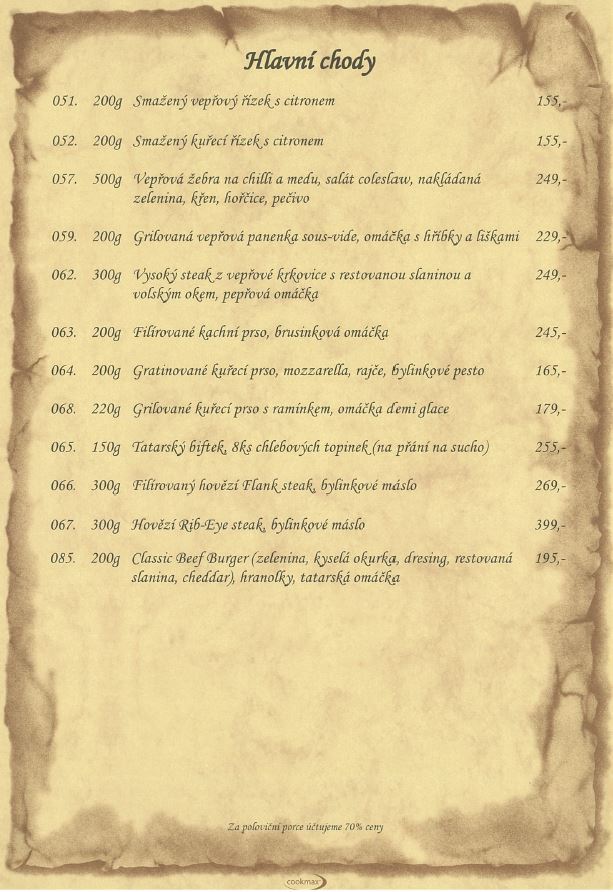 Hlavní chody
051. 200g Smažený vepřový řízek s citronem 155,-
052. 200g Smažený kuřecí řízek s citronem 155,-
057. 500g Vepřová žebra na chilli a medu, salát coleslaw, nakládaná 249,-
zelenina, křen, hořčice, pečivo
059. 200g Grilovaná vepřová panenka sous-vide, omáčka s hříbky a liškami 229,-
062. 300g Vysoký steak z vepřové krkovice s restovanou slaninou a 249,-
volským okem, pepřová omáčka
063. 200g Filírované kachní prso, brusinková omáčka 245,-
064. 200g Gratinované kuřecí prso, mozzarella, rajče, bylinkové pesto 165,-
068. 220g Grilované kuřecí prso s ramínkem, omáčka demi glace 179,-
065. 150g Tatarský biftek, 8ks chlebových topinek (na přání na sucho) 255,-
066. 300g Filírovaný hovězí Flank steak, bylinkové máslo 269,-
067. 300g Hovězí Rib-Eye steak, bylinkové máslo 399,-
085. 200g Classic Beef Burger (zelenina, kyselá okurka, dresing, restovaná 195,-
slanina, cheddar), hranolky, tatarská omáčka
Za poloviční porce účtujeme 70% ceny
cookmax